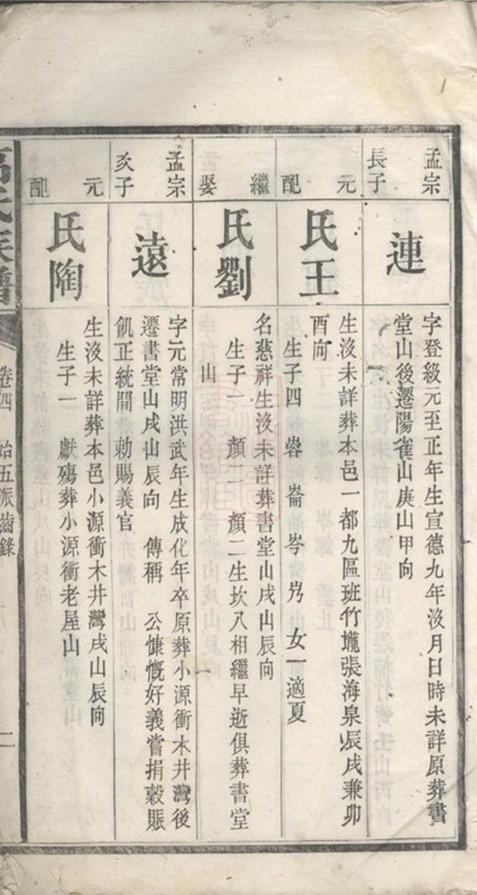 孟宗長子
連
字登級元至正年生宣德九年沒月日時未詳原葬書
堂山後遷陽雀山庚山甲向
元配
王氏
生沒未詳葬本邑一都九區班竹壠張海泉辰戌兼卯
酉向
生子四 崙 岑 女一適夏
繼娶
劉氏
名慈祥生沒未詳葬書堂山戌山辰向
生子一 顏一 顏二生坎八相繼早逝俱葬書堂
山
孟宗次子
遠
字元常明洪武年生成化年卒原葬小源衝木井灣後
遷書堂山戌山辰向 傳稱 公慷慨好義嘗捐穀賬
飢正統間 勅賜義官
元配
陶氏
生沒未詳葬本邑小源衝木井灣戌山辰向
生子一 獻殤葬小源衝老屋山
氏族譜
卷四 始五派齒錄